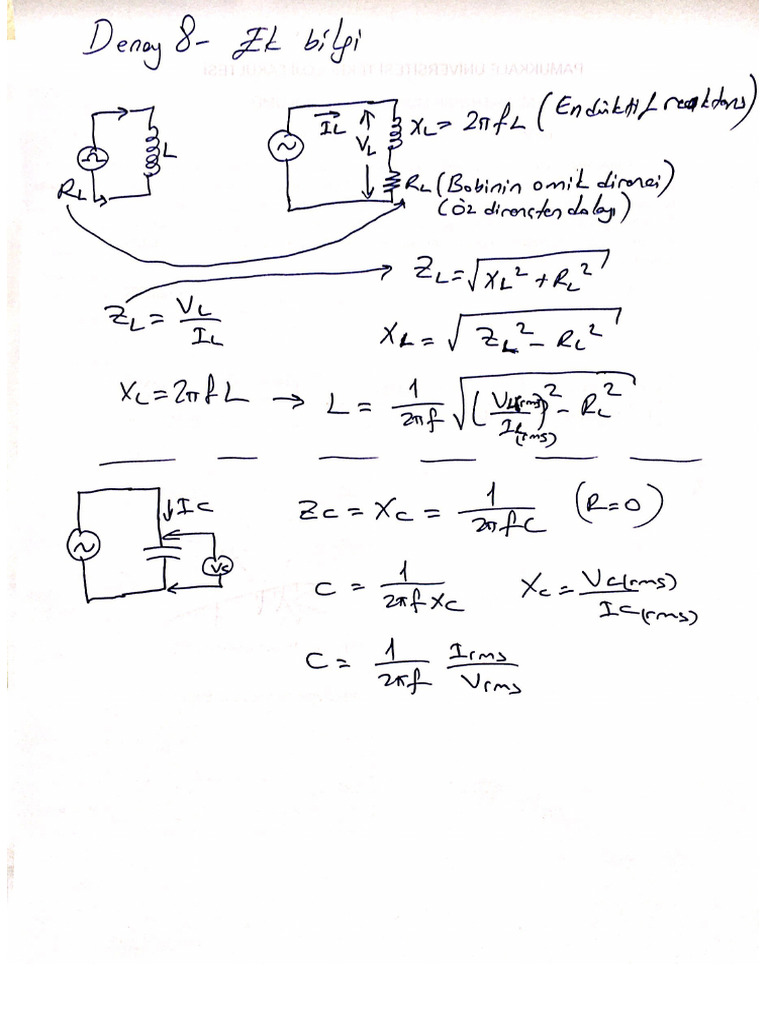 Deney 8- Ek bilgi
L
RL
IL
VL
XL = 2πfL (Endüktif reaktans)
RL (Bobinin omik direnci)
(Öz dirençten dolayı)
ZL = √(XL² + RL²)
ZL = VL / IL
XL = √(ZL² - RL²)
XL = 2πfL → L = 1/2πf √((VL(rms)/IL(rms))² - RL²)
IC
VC
ZC = XC = 1/2πfC (R=0)
C = 1/2πfXC
XC = VC(rms) / IC(rms)
C = 1/2πf Irms/Vrms